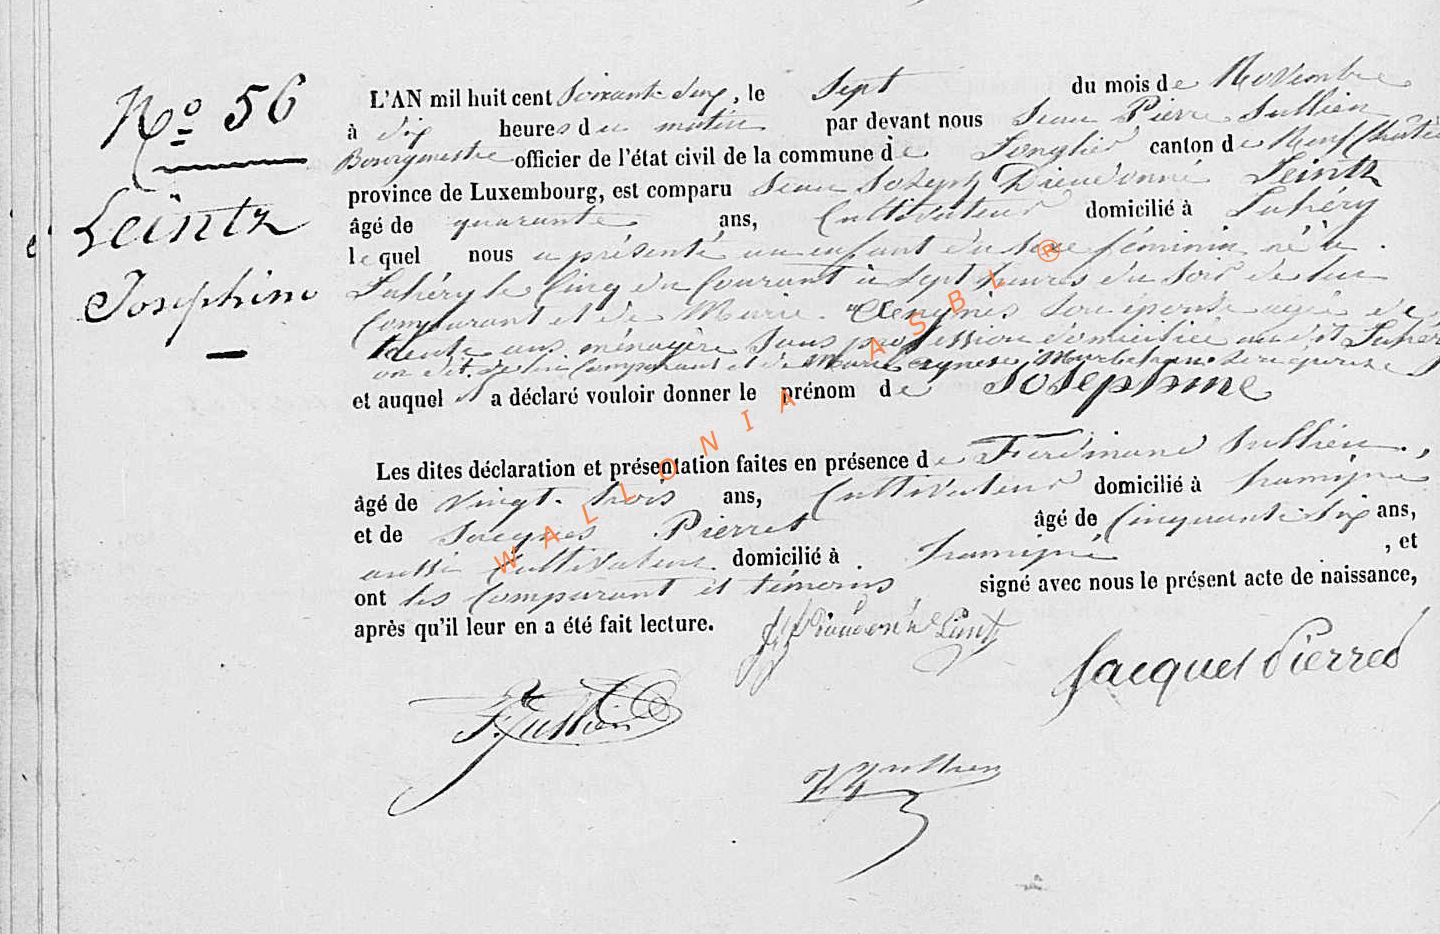 N° 56
Leintz
Josephine
L'AN mil huit cent Soixante Deux, le Sept du mois de Novembre
à Dix heures du matin par devant nous Jean Pierre Jullien
Bourgmestre officier de l'état civil de la commune de Longlier canton de Neufchâteau
province de Luxembourg, est comparu Jean Joseph Dieudonné Leintz
âgé de quarante ans, Cultivateur domicilié à Lahéry
lequel nous a présenté un enfant du sexe féminin né à
Lahéry le Cinq du Courant à Sept heures du Soir de lui
Comparant et de Marie Agnès son épouse agée de
trente ans ménagère Sans profession domiciliée audit Lahéry
Comparant et de Marie Agnes
et auquel il a déclaré vouloir donner le prénom de Josephine
Les dites déclaration et présentation faites en présence de Ferdinand Jullien,
âgé de vingt-trois ans, Cultivateur domicilié à Tramigné
et de Jacques Pierret âgé de Cinquante Six ans,
aussi Cultivateur domicilié à Tramigné, et
ont les Comparant et témoins signé avec nous le présent acte de naissance,
après qu'il leur en a été fait lecture.
JJ Dieudonné Lintz
Jacques Pierred
F. Jullien
Jullien
WALLONIA ASBL ®